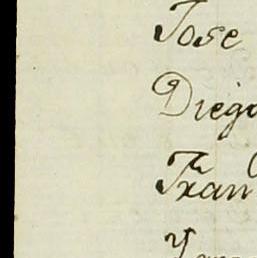 Jose
Diego
Fran